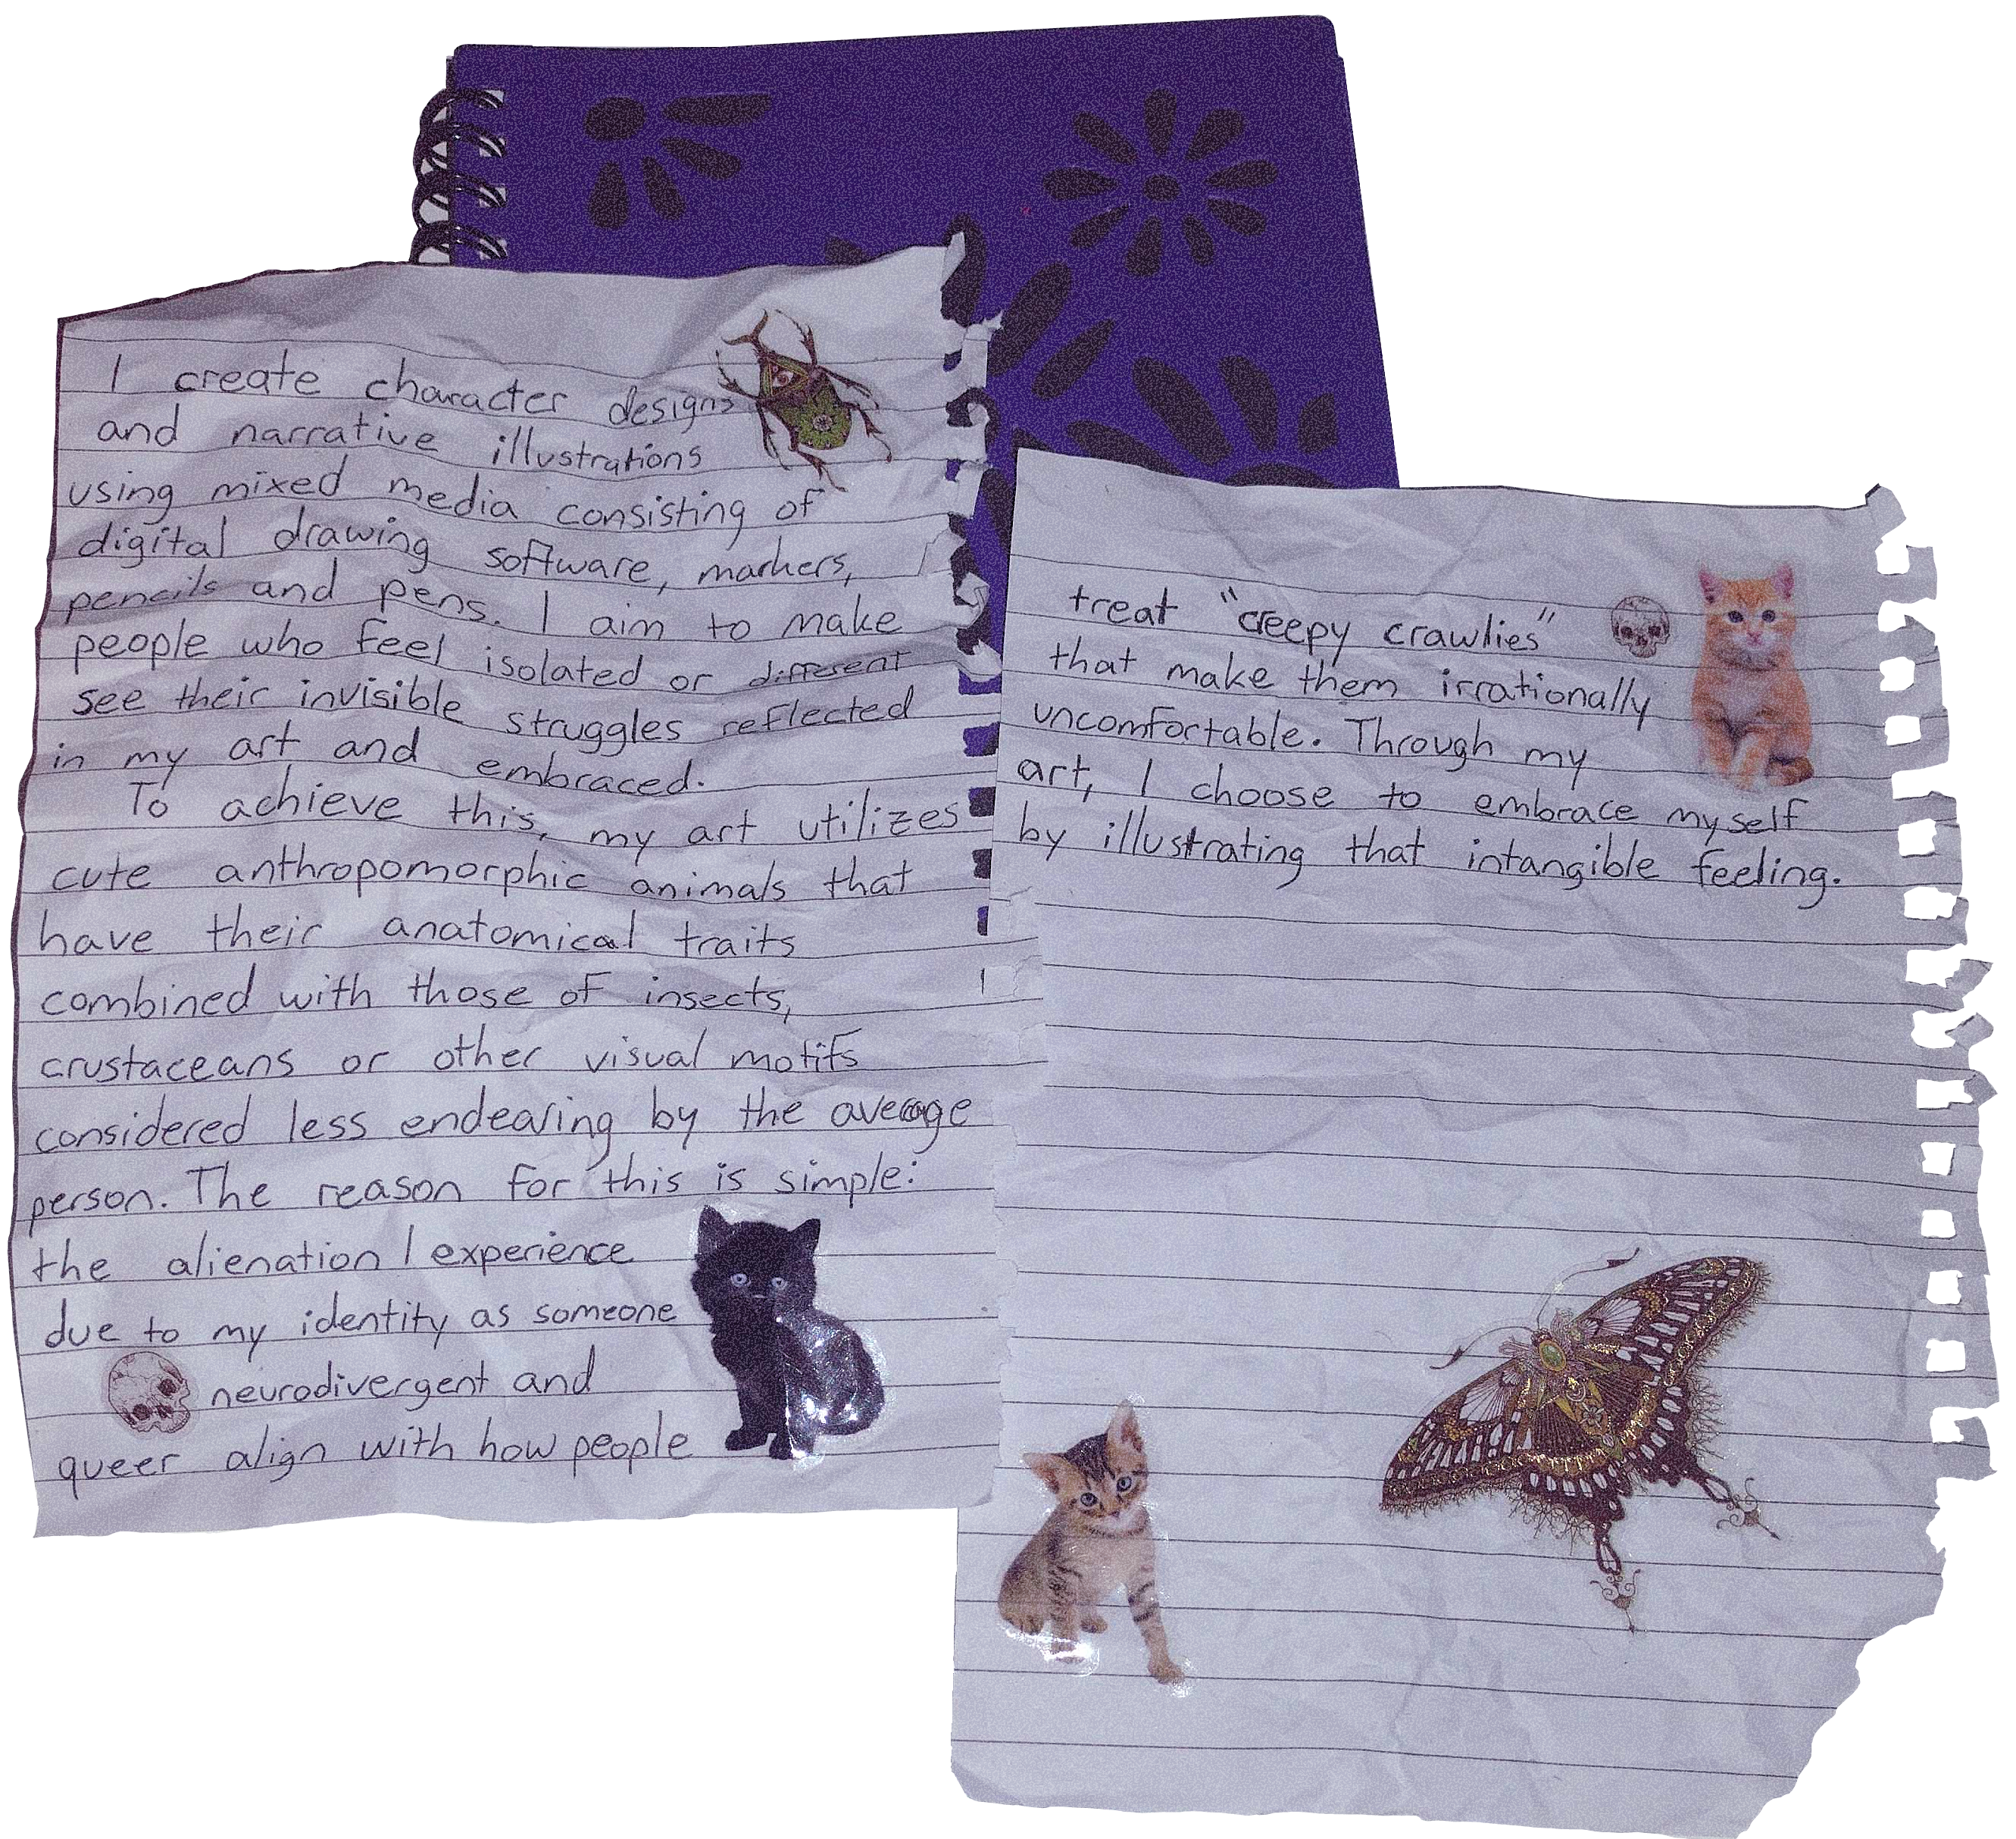 I create character designs
and narrative illustrations
using mixed media consisting of
digital drawing software, markers,
pencils and pens. I aim to make
people who feel isolated or different
see their invisible struggles reflected
in my art and embraced.
To achieve this, my art utilizes
cute anthropomorphic animals that
have their anatomical traits
combined with those of insects,
crustaceans or other visual motifs
considered less endearing by the average
person. The reason for this is simple:
the alienation I experience
due to my identity as someone
neurodivergent and
queer align with how people
treat "creepy crawlies"
that make them irrationally
uncomfortable. Through my
art, I choose to embrace myself
by illustrating that intangible feeling.